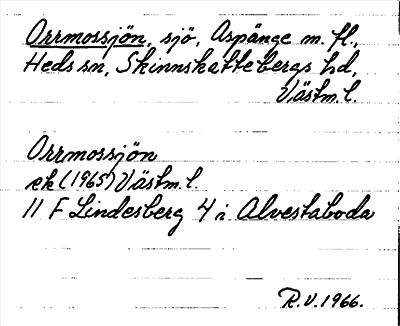 Orrmossjön, sjö, Aspänge m. fl.,
Heds sn, Skinnskattebergs hd,
Västm. l.
Orrmossjön
ek (1965) Västm. l.
11 F Lindesberg 4 i Alvestaboda
R.V. 1966.